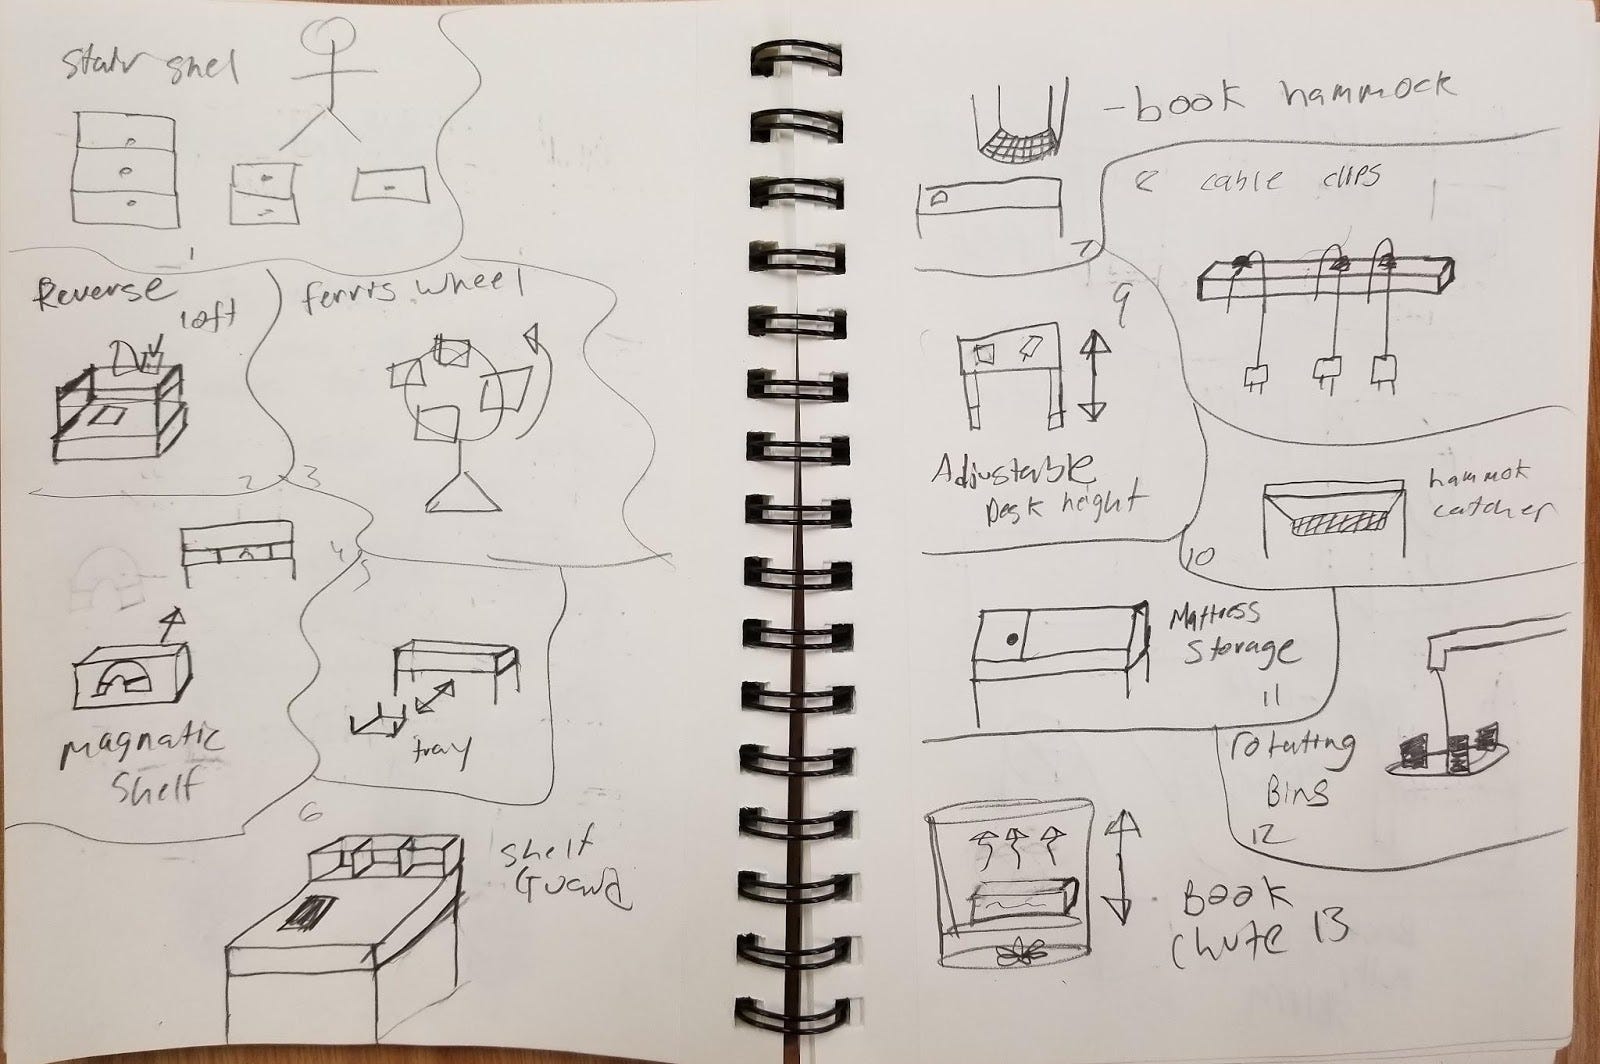 Stair shel
1
Reverse
loft
2
ferris wheel
3
4
magnatic
shelf
5
tray
6
shelf
Guard
-book hammock
7
8 cable clips
9
Adjustable
Desk height
10
hammok
catcher
Mattress
Storage
11
rotating
Bins
12
Book
Chute 13